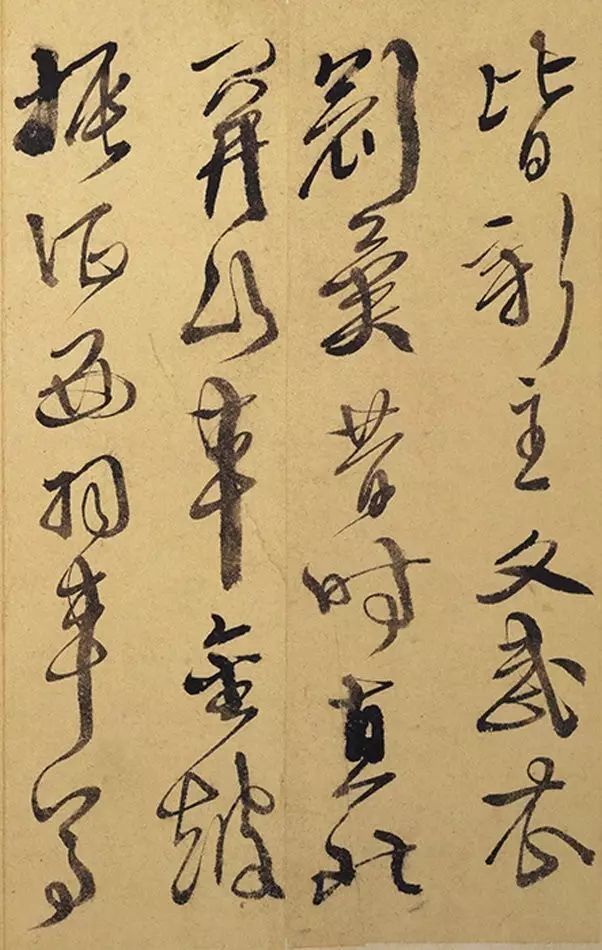 皆新主文武衣
冠異昔時直北
關山車金鼓
振征西車馬